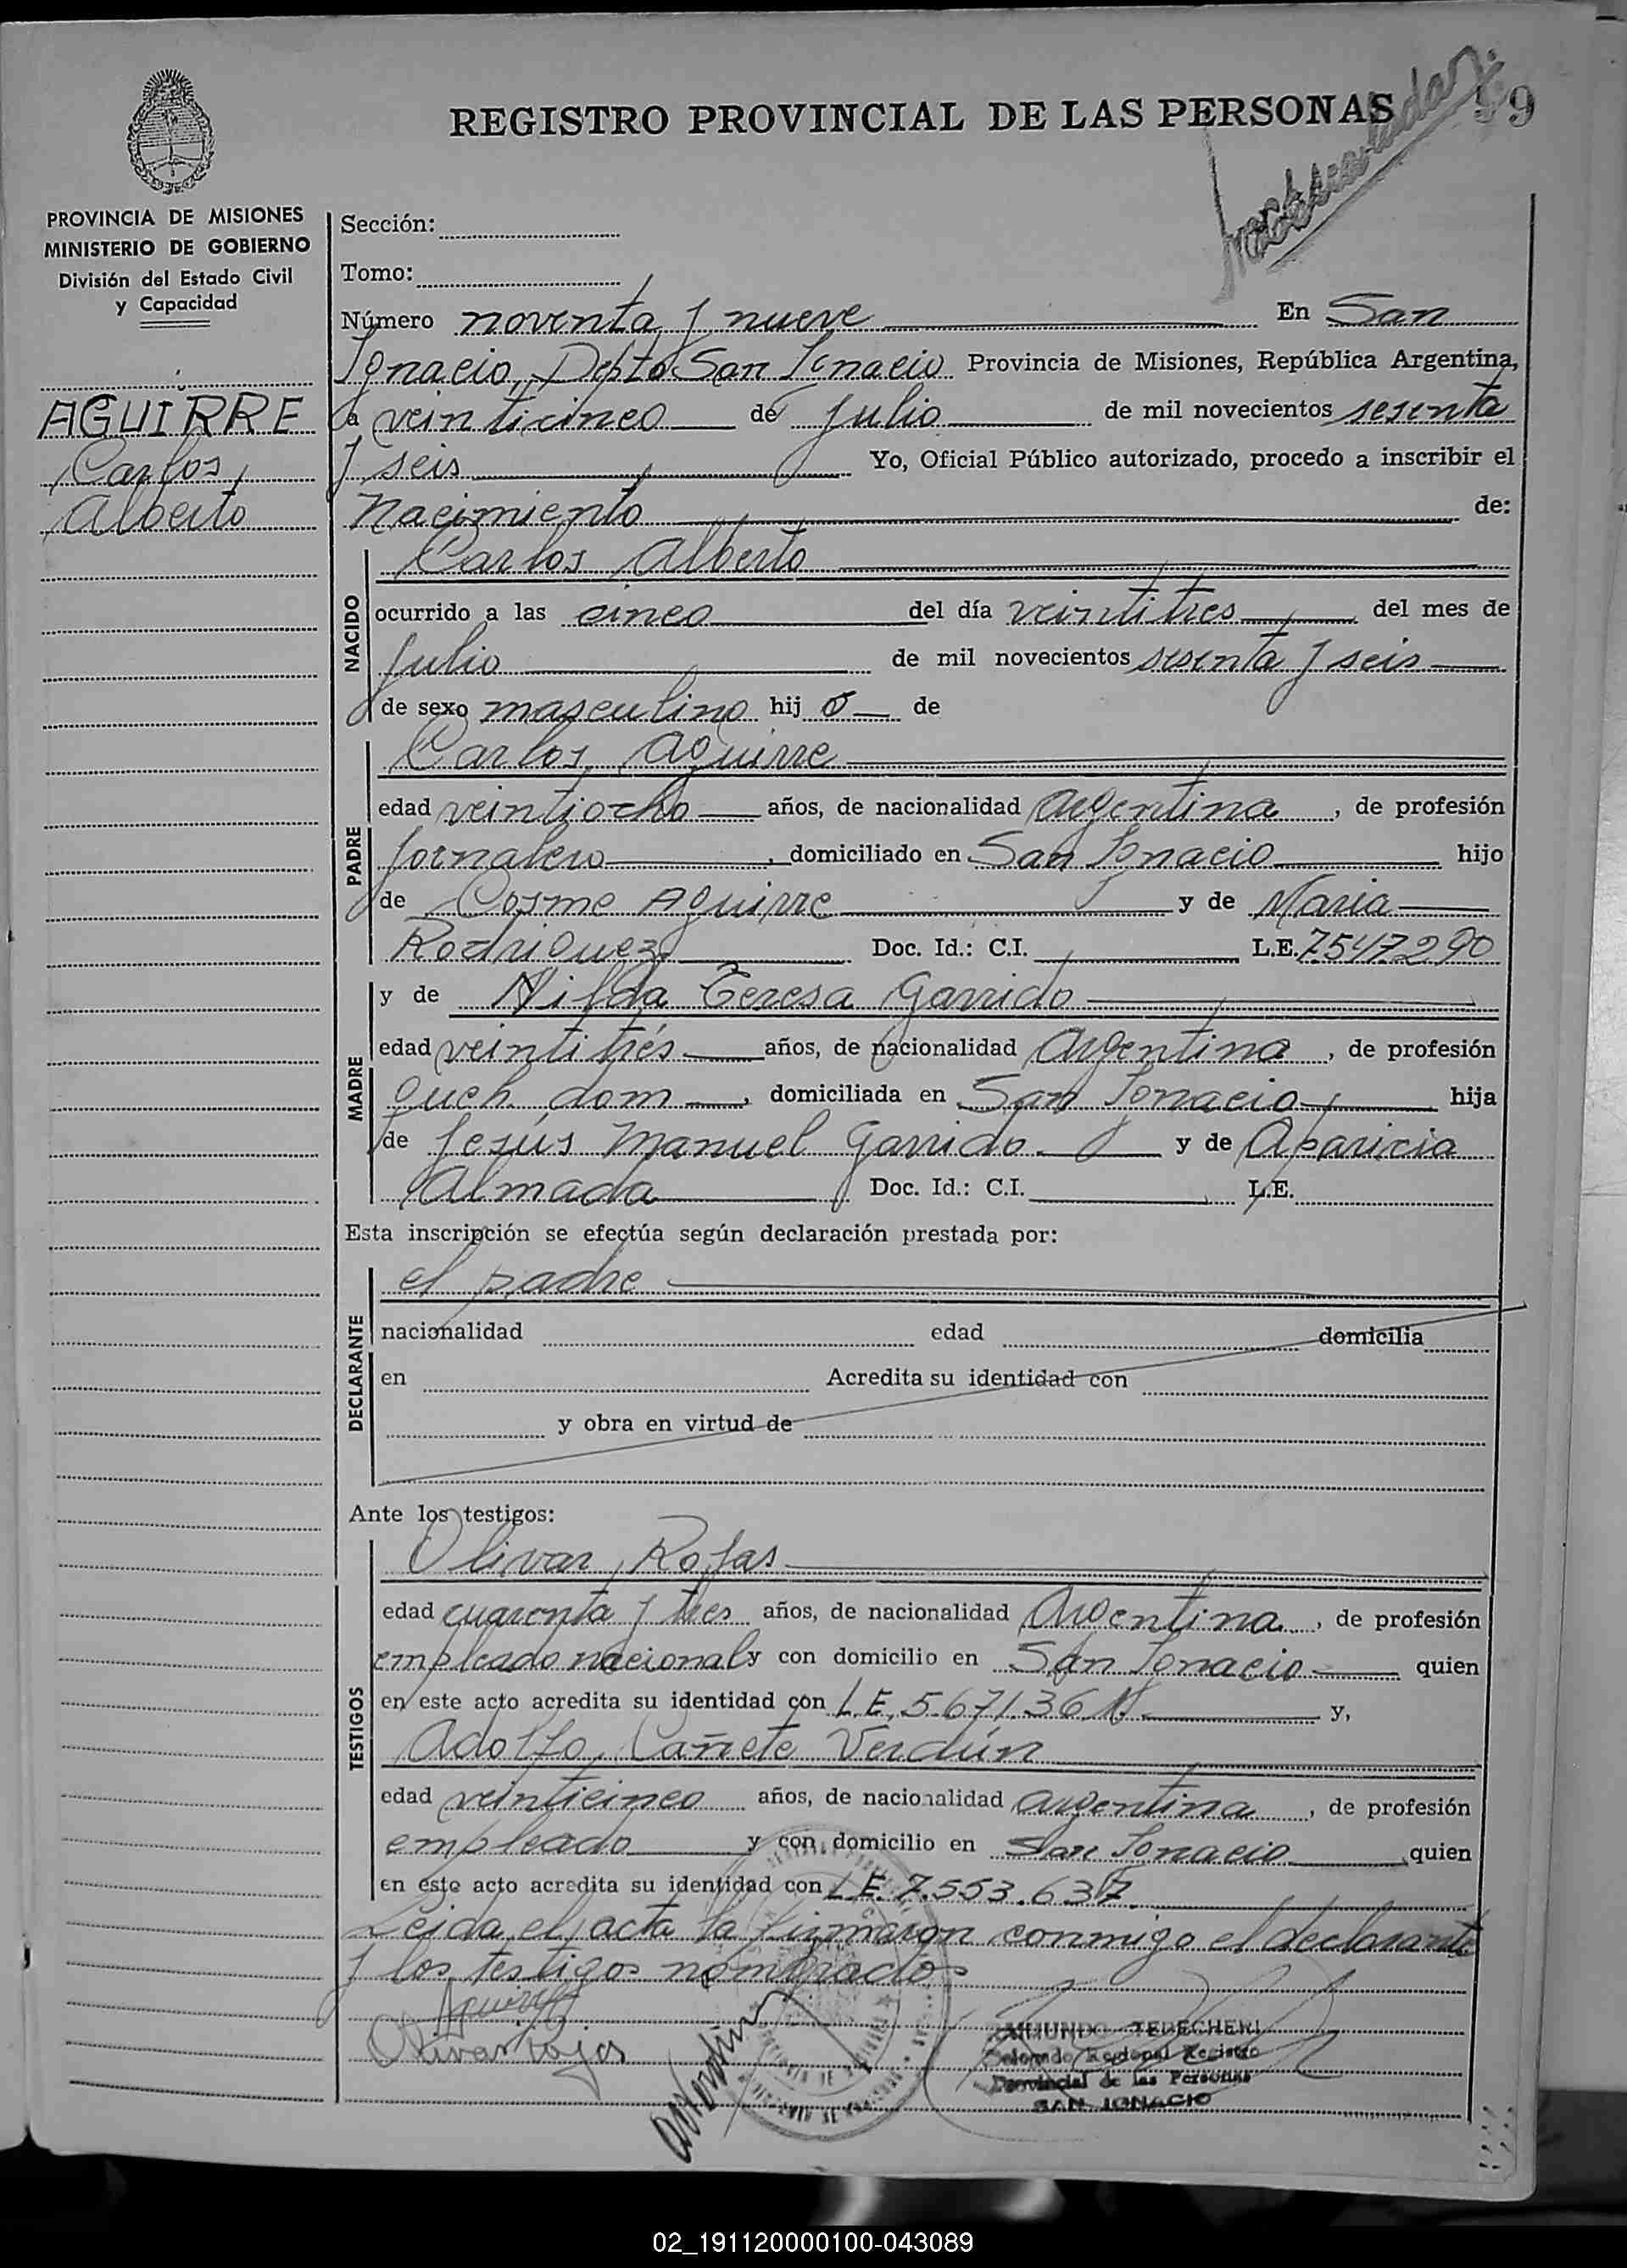 REGISTRO PROVINCIAL DE LAS PERSONAS 99
PROVINCIA DE MISIONES
MINISTERIO DE GOBIERNO
División del Estado Civil
y Capacidad
AGUIRRE
Carlos
Alberto
Sección:
Tomo:
Número noventa y nueve En San
Ignacio, Depto San Ignacio Provincia de Misiones, República Argentina,
a veinticinco de julio de mil novecientos sesenta
y seis Yo, Oficial Público autorizado, procedo a inscribir el
Nacimiento de:
NACIDO
Carlos Alberto
ocurrido a las cinco del día veintitres del mes de
Julio de mil novecientos sesenta y seis
de sexo masculino hij o de
PADRE
Carlos Aguirre
edad veintiocho años, de nacionalidad Argentina, de profesión
Jornalero, domiciliado en San Ignacio hijo
de Cosme Aguirre y de Maria
Rodriguez Doc. Id.: C.I. L.E. 7.547.290
MADRE
y de Nilda Teresa Garrido
edad veintitrés años, de nacionalidad Argentina, de profesión
queh. dom, domiciliada en San Ignacio hija
de Jesús Manuel Garrido y de Aparicia
Almada Doc. Id.: C.I. L.E.
Esta inscripción se efectúa según declaración prestada por:
DECLARANTE
el padre
nacionalidad edad domicilia
en Acredita su identidad con
y obra en virtud de
Ante los testigos:
TESTIGOS
Olivar Rojas
edad cuarenta y tres años, de nacionalidad Argentina, de profesión
empleado nacional y con domicilio en San Ignacio quien
en este acto acredita su identidad con L.E. 5.671.36 y,
Adolfo Cañete Verdún
edad veinticinco años, de nacionalidad argentina, de profesión
empleado y con domicilio en San Ignacio quien
en este acto acredita su identidad con L.E. 7.553.637
Leida el acta la firmaron conmigo el declarante
y los testigos nombrados
Aguirre
Olivar Rojas
RAIMUNDO TEDECHEKI
Delegado Regional Registro
Provincial de las Personas
SAN IGNACIO
02_191120000100-043089